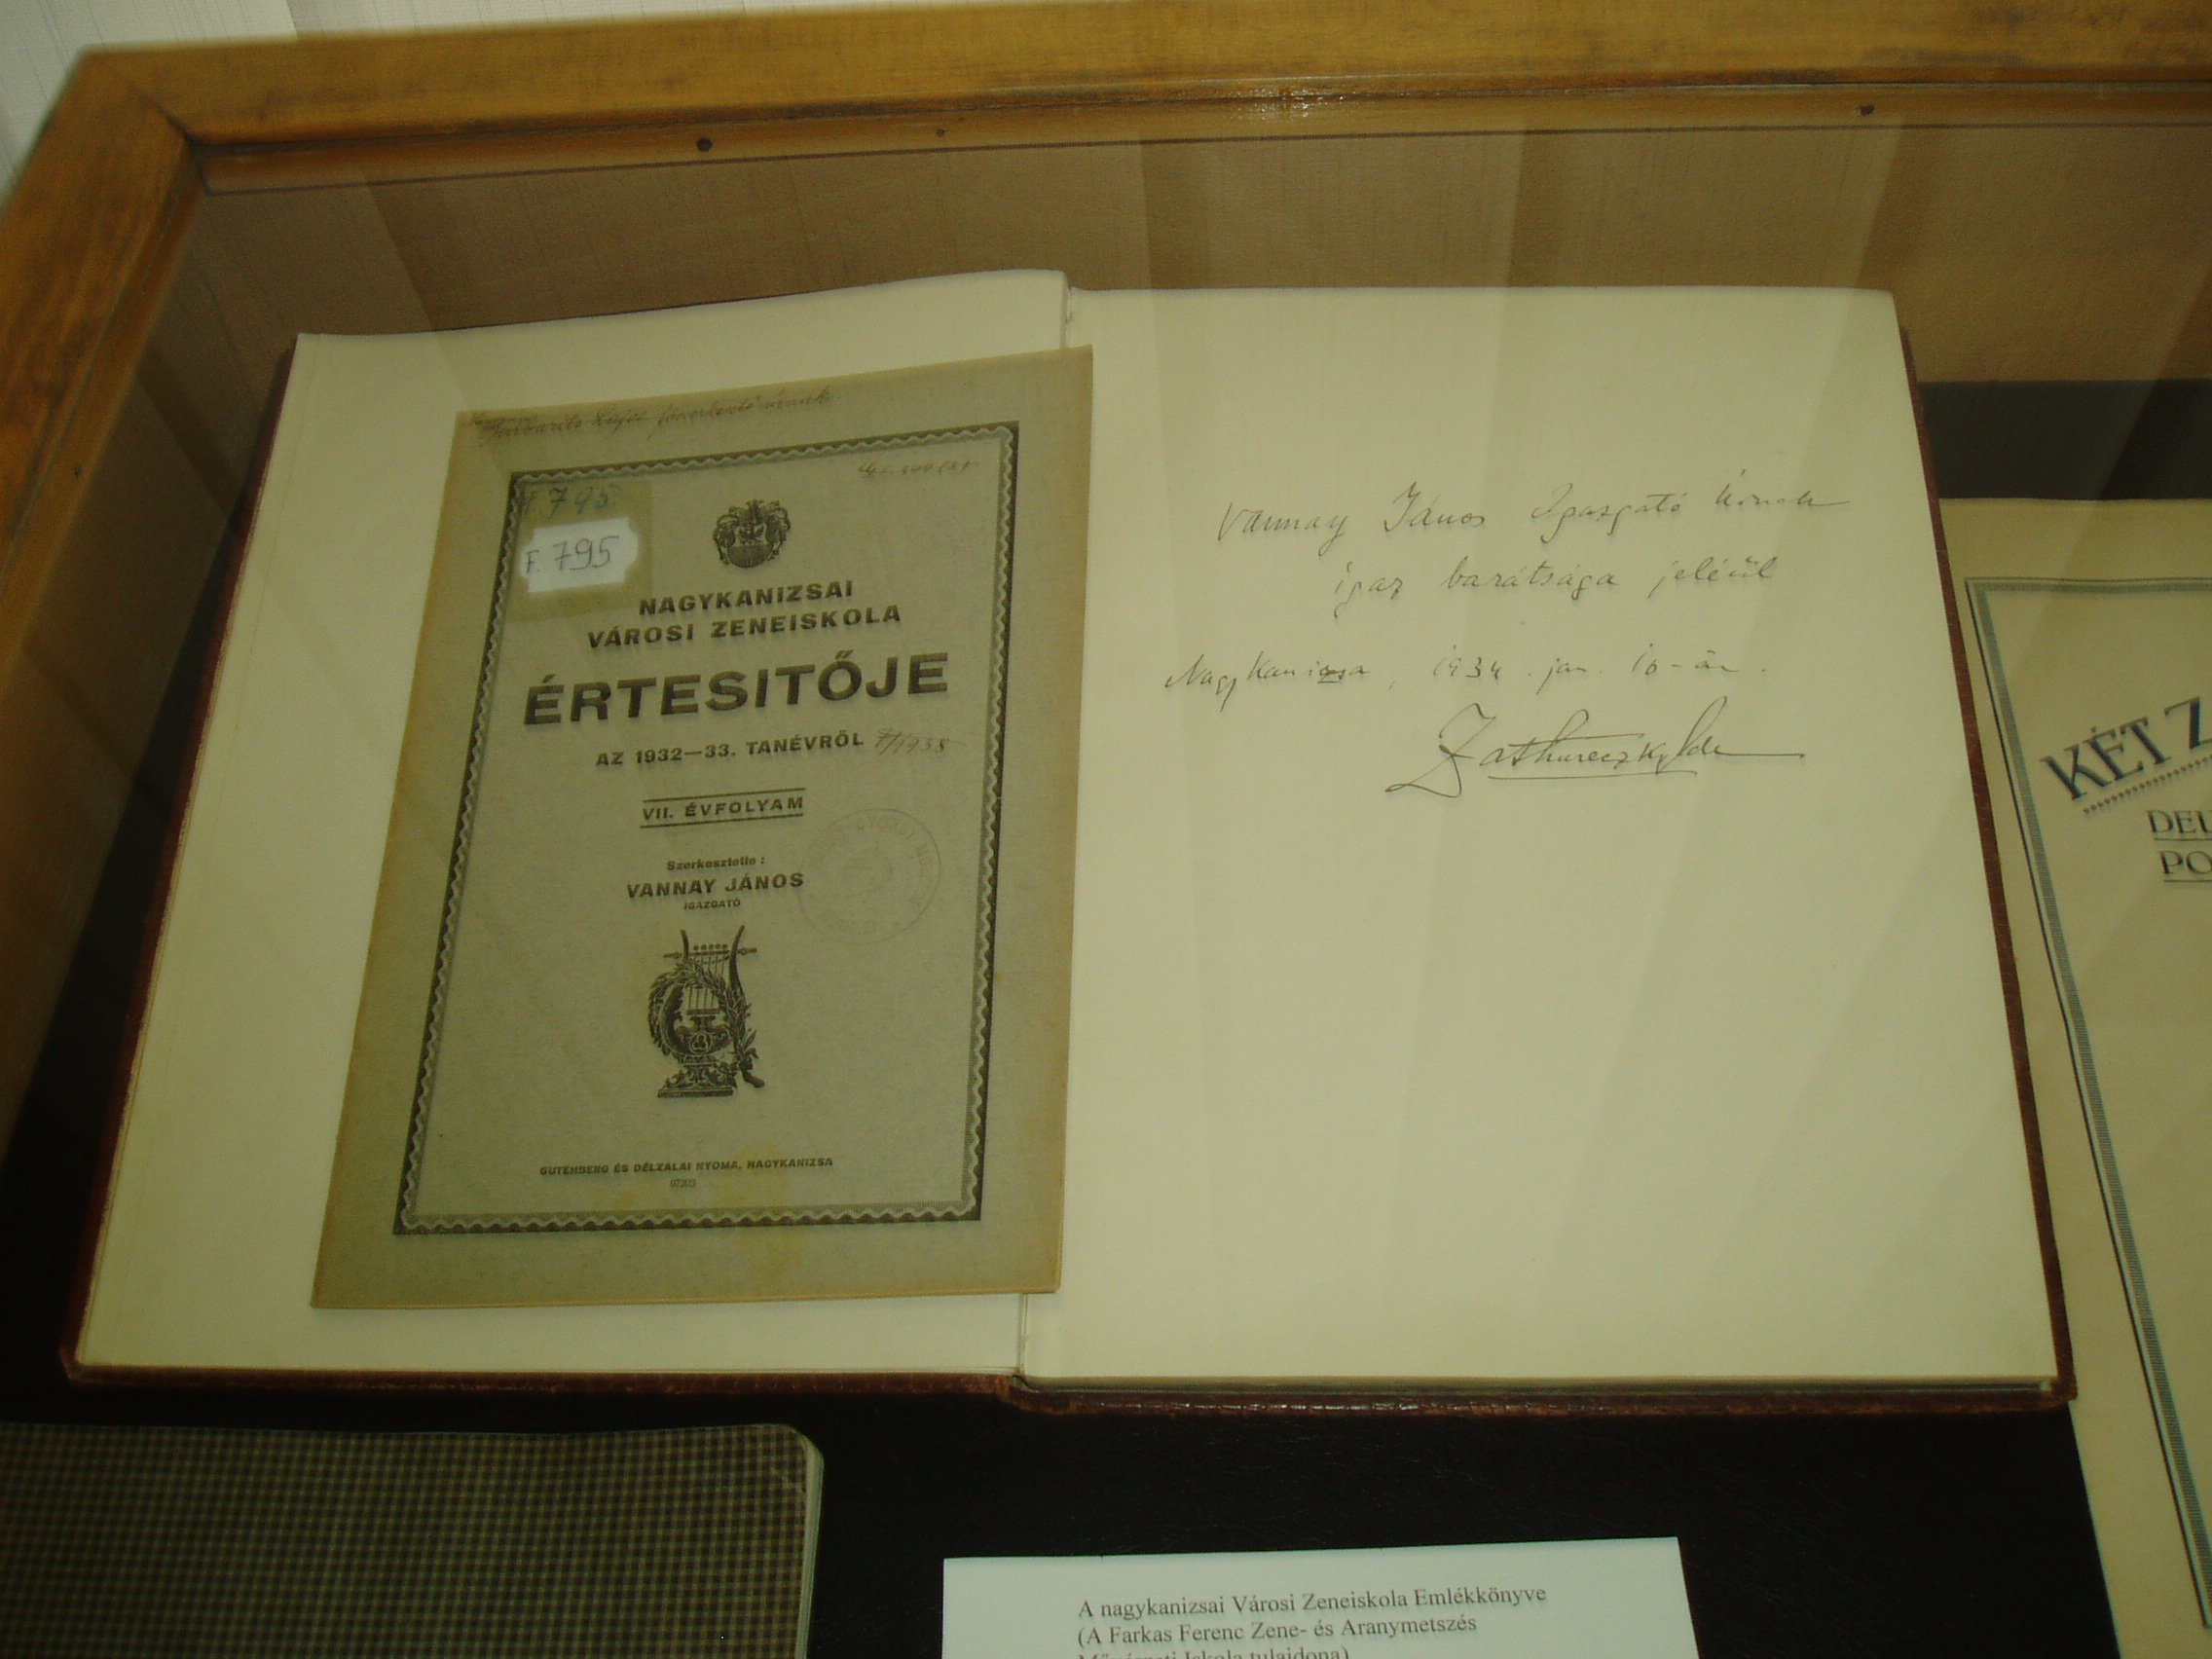 F. 795
F. 795
NAGYKANIZSAI
VÁROSI ZENEISKOLA
ÉRTESITŐJE
AZ 1932—33. TANÉVRŐL
VII. ÉVFOLYAM
Szerkesztette:
VANNAY JÁNOS
IGAZGATÓ
GUTENBERG ÉS DÉLZALAI NYOMA, NAGYKANIZSA
Vannay János Igazgató Úrnak
igaz barátsága jeléül
Nagykanizsa, 1934. jan. 10-én.
Zathureczky Ede
KÉT Z
DEL
PO
A nagykanizsai Városi Zeneiskola Emlékkönyve
(A Farkas Ferenc Zene- és Aranymetszés
Művészeti Iskola tulajdona)